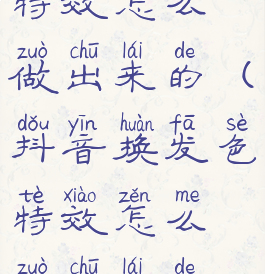 特效怎么
zuò chū lái de
做出来的（
dǒu yīn huàn fā sè
抖音换发色
tè xiào zěn me
特效怎么
zuò chū lái de